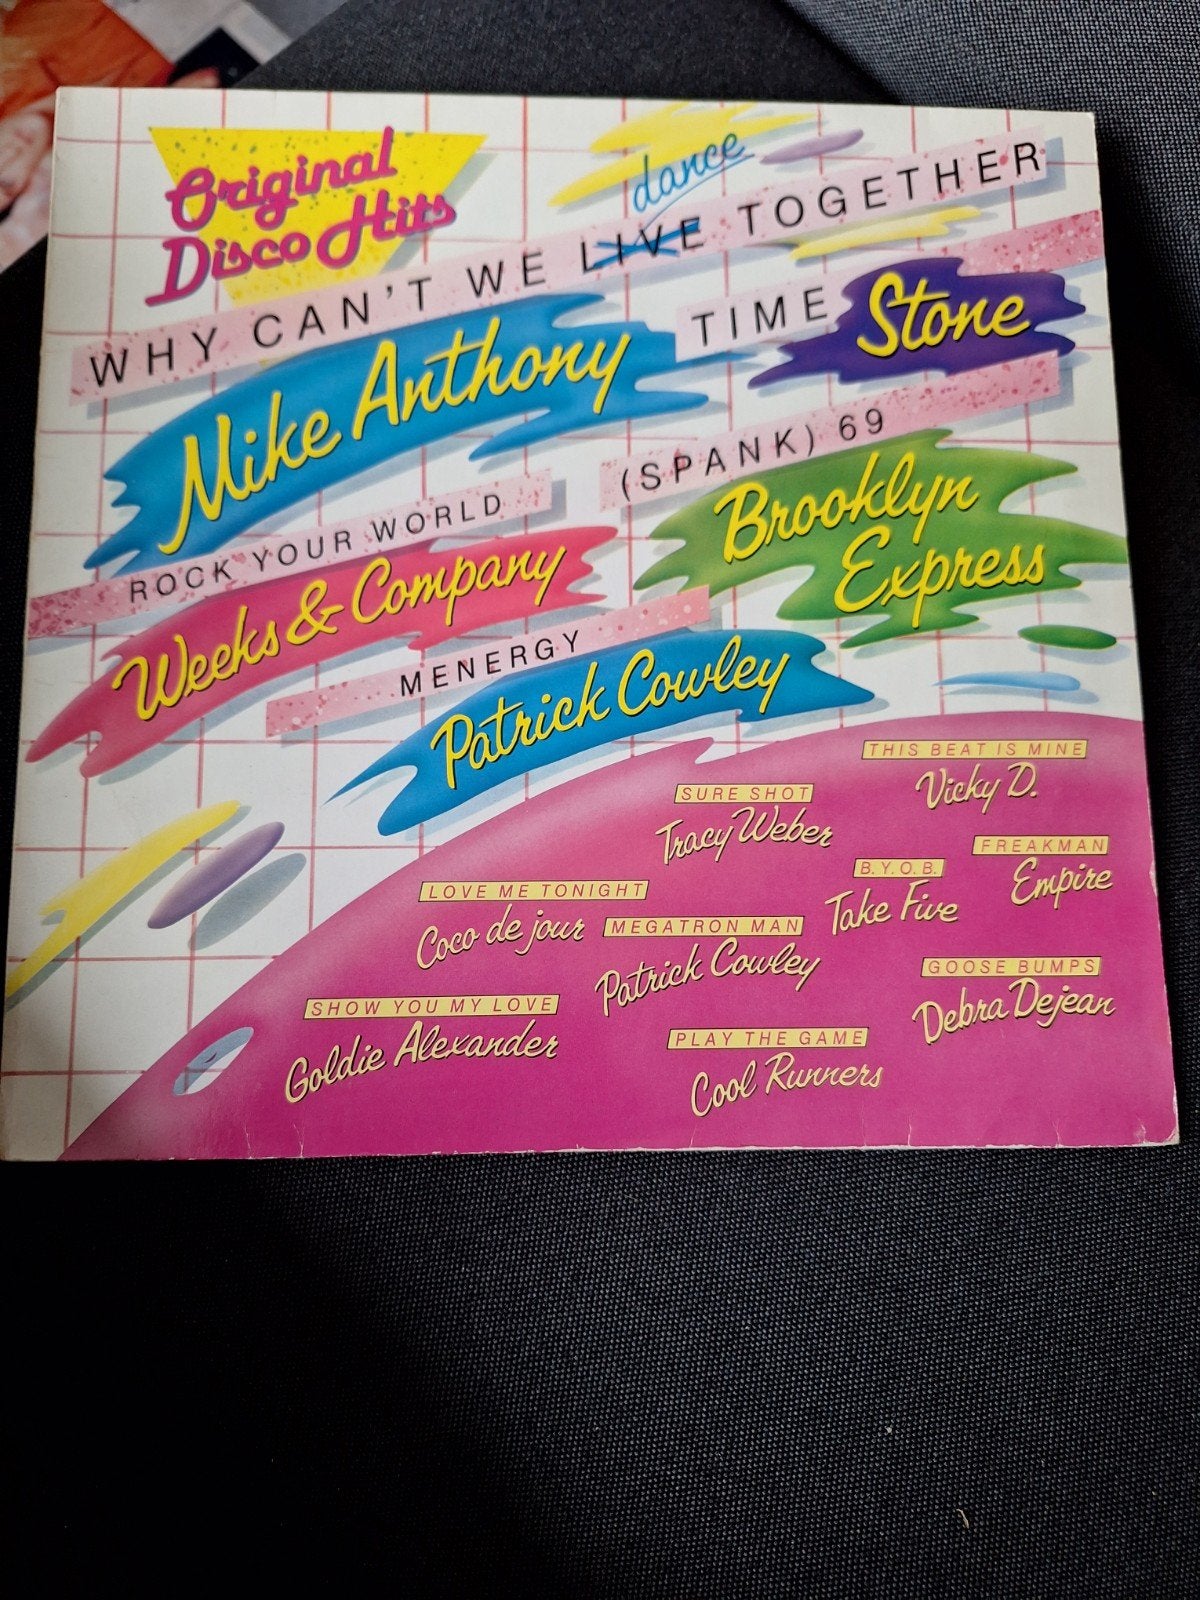 Original
Disco Hits
dance
WHY CAN'T WE LIVE TOGETHER
Mike Anthony
TIME
Stone
(SPANK) 69
Brooklyn
Express
ROCK YOUR WORLD
Weeks & Company
MENERGY
Patrick Cowley
THIS BEAT IS MINE
Vicky D.
SURE SHOT
Tracy Weber
FREAKMAN
Empire
B.Y.O.B.
Take Five
LOVE ME TONIGHT
Coco de jour
MEGATRON MAN
Patrick Cowley
GOOSE BUMPS
Debra Dejean
SHOW YOU MY LOVE
Goldie Alexander
PLAY THE GAME
Cool Runners